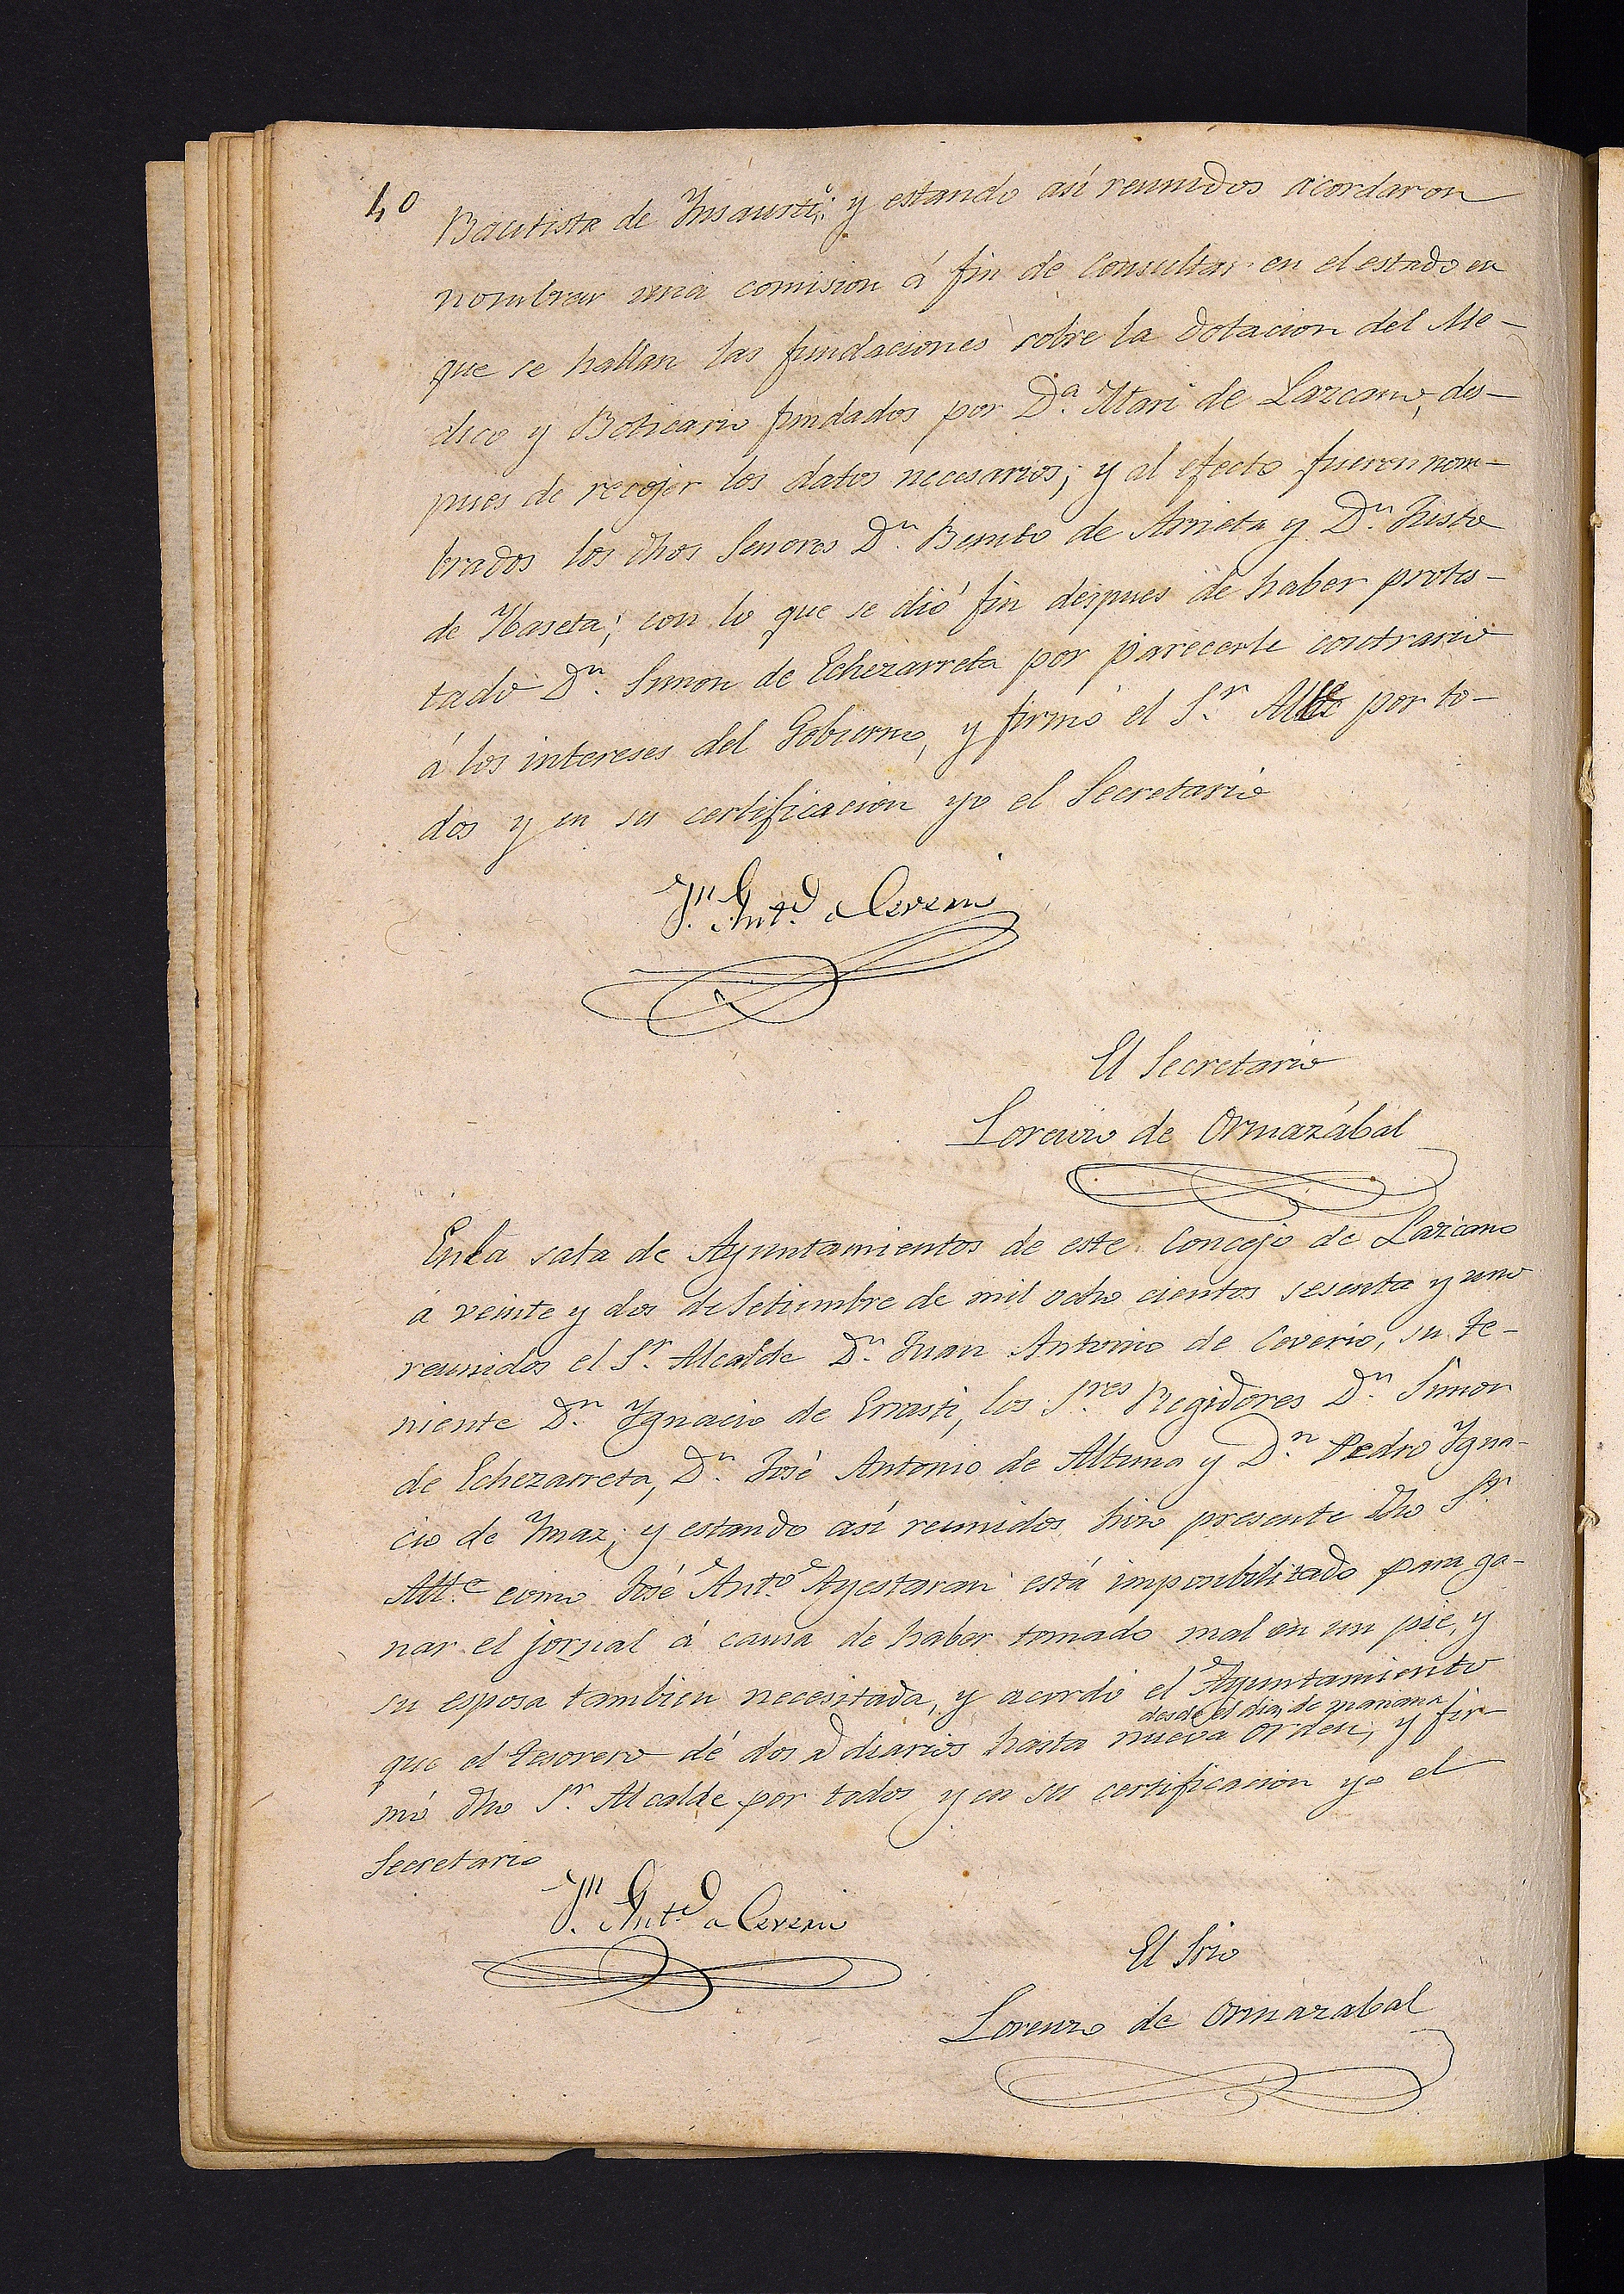 40
Bautista de Insausti; y estando así reunidos acordaron
nombrar una comision á fin de Consultar en el estado en
que se hallan las fundaciones sobre la dotacion del Me-
dico y Boticario fundados por D.ª Mari de Lazcano, des-
pues de recojer los datos necesarios; y al efecto fueron nom-
brados los dhos Senores D.n Benito de Arrieta y D.n Justo
de Ibaseta; con lo que se dió fin despues de haber protes-
tado D.n Simon de Echezarreta por parecerle contrario
á los intereses del Gobierno, y firmó el S.r Allte por to-
dos y en su certificacion yo el Secretario
J.n Ant.o a Coverio
El Secretario
Lorenzo de Ormazábal
En la sala de Ayuntamientos de este Concejo de Lazcano
á veinte y dos de Setiembre de mil ocho cientos sesenta y uno
reunidos el S.r Alcalde D.n Juan Antonio de Coverio, su te-
niente D.n Ygnacio de Errasti, los S.res Regidores D.n Simon
de Echezarreta, D.n José Antonio de Altuna y D.n Pedro Ygna-
cio de Ymaz; y estando así reunidos hizo presente dho S.r
Allt.e como José Ant.o Ayestaran está imposibilitado para ga-
nar el jornal á causa de haber tomado mal en un pie, y
su esposa tambien necesitada, y acordó el Ayuntamiento
desde el dia de mañana
que el tesorero dé dos diarios hasta nueva orden, y fir-
mó dho S.r Alcalde por todos y en su certificacion yo el
Secretario
J.n Ant.o a Coverio
El Srio
Lorenzo de Ormazabal